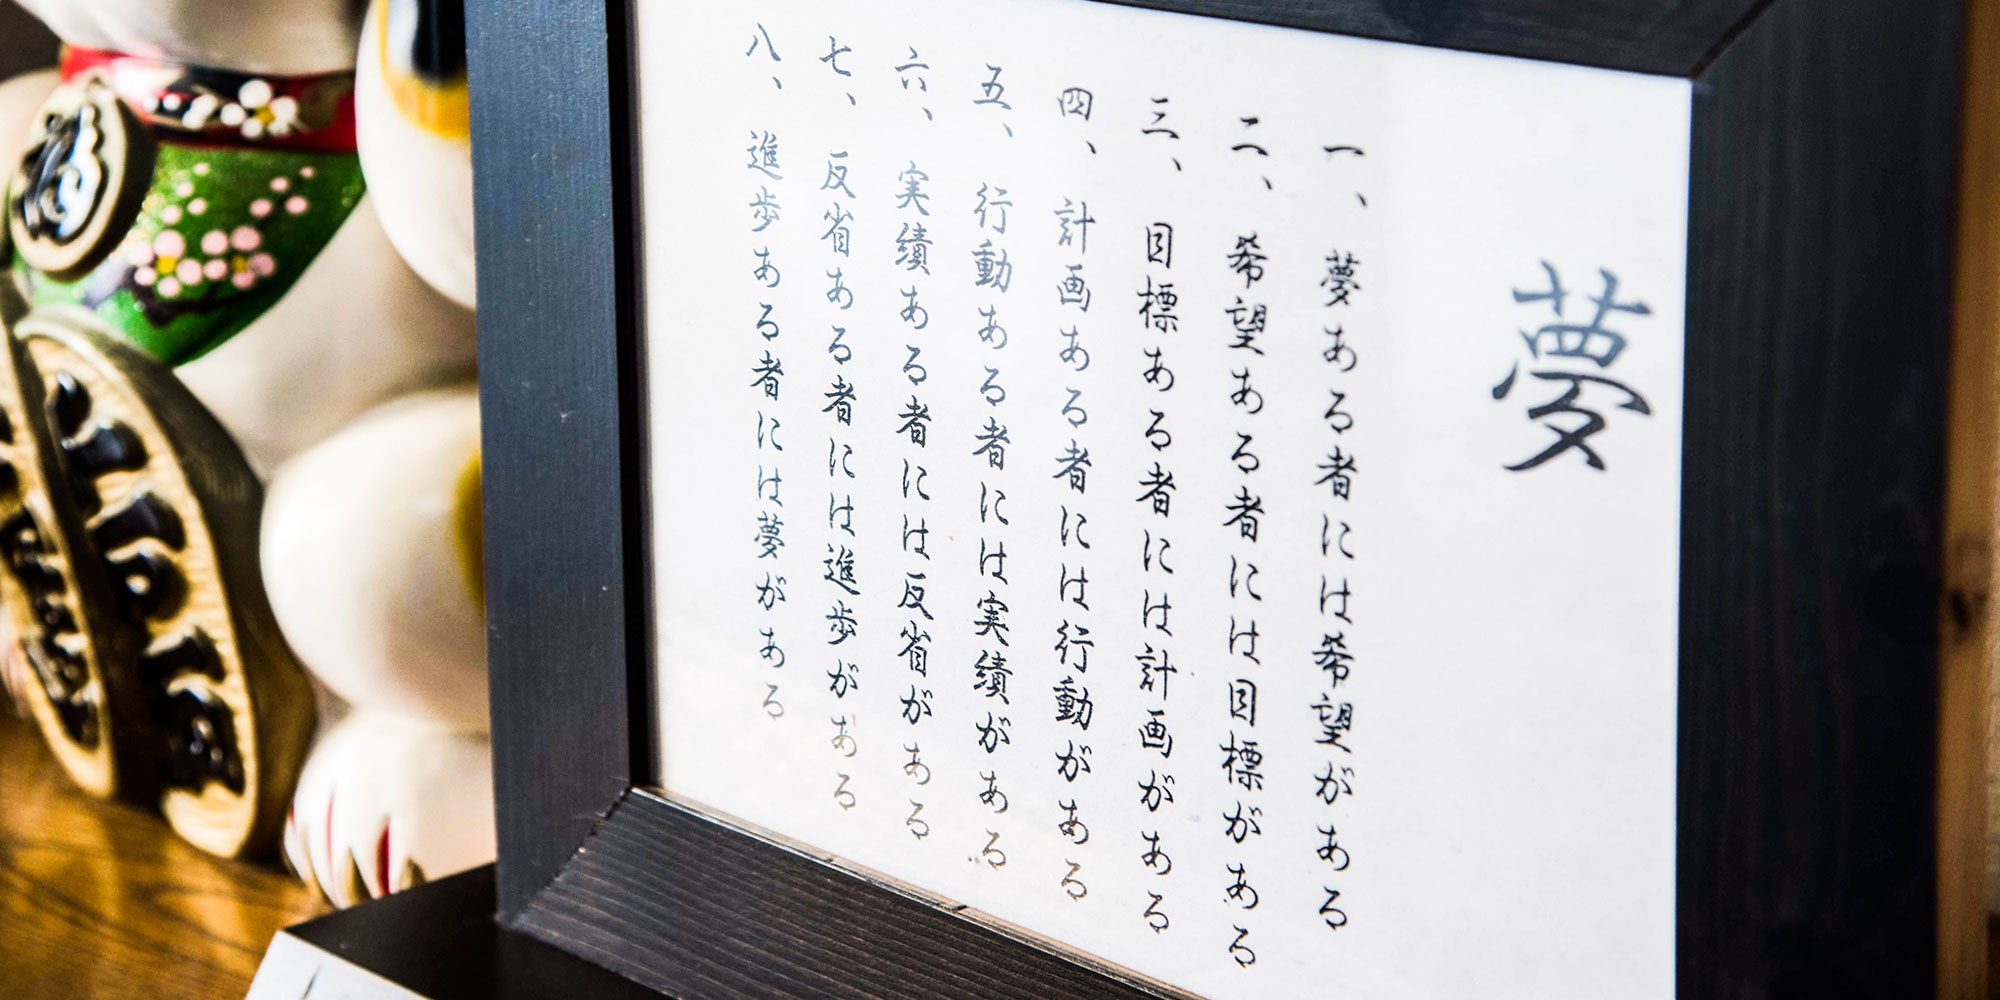 夢
一、夢ある者には希望がある
二、希望ある者には目標がある
三、目標ある者には計画がある
四、計画ある者には行動がある
五、行動ある者には実績がある
六、実績ある者には反省がある
七、反省ある者には進歩がある
八、進歩ある者には夢がある